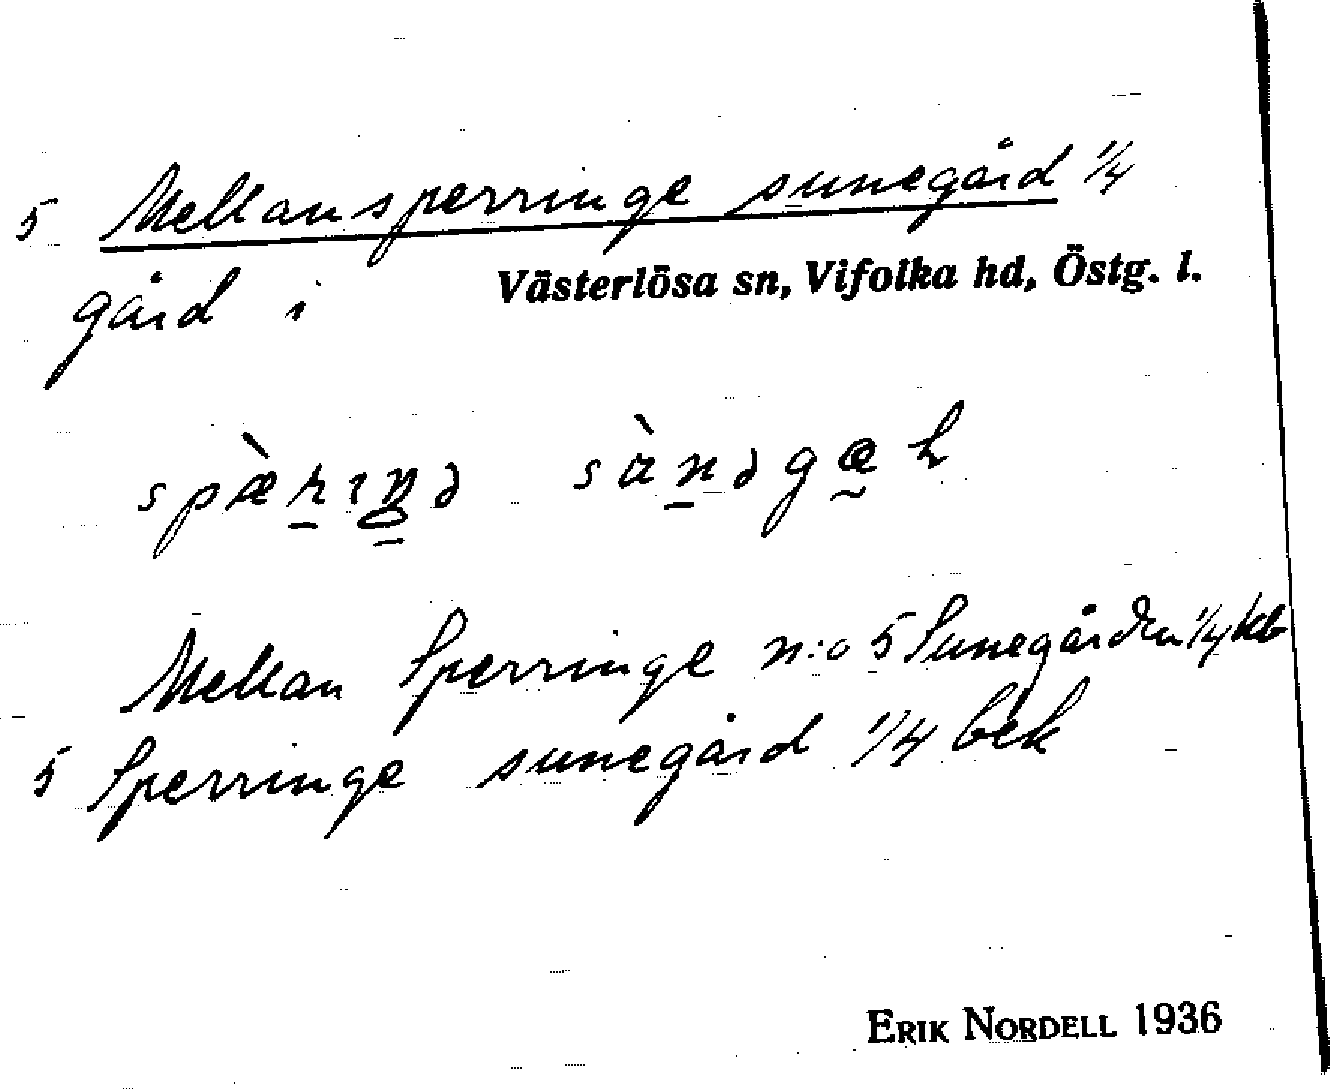 5 Mellansperringe sunegård 1/4
gård i Västerlösa sn, Vifolka hd, Östg. l.
Mellan Sperringe n:o 5 Sunegården 1/4
5 Sperringe sunegård 1/4 bek
ERIK NORDELL 1936